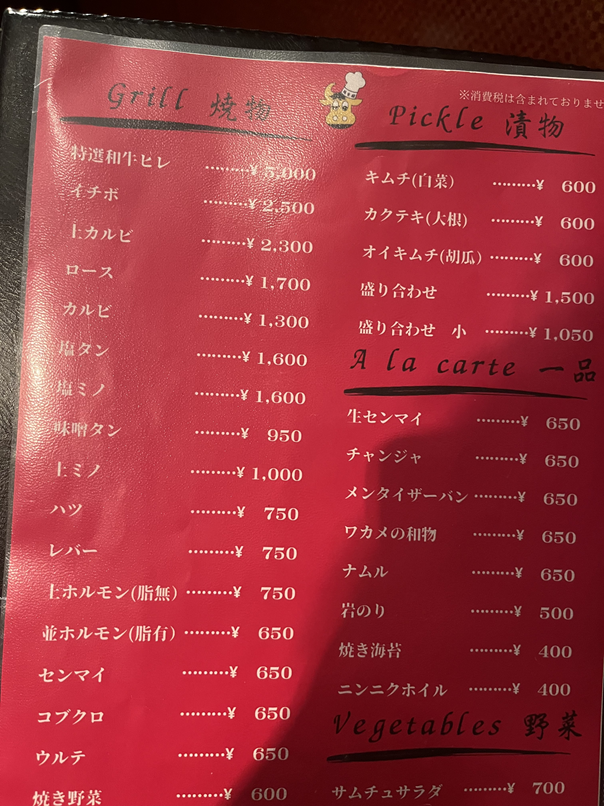 Grill 焼物
特選和牛ヒレ ………¥ 5,000
イチボ ………¥ 2,500
上カルビ ………¥ 2,300
ロース ………¥ 1,700
カルビ ………¥ 1,300
塩タン ………¥ 1,600
塩ミノ ………¥ 1,600
味噌タン ………¥ 950
上ミノ ………¥ 1,000
ハツ ………¥ 750
レバー ………¥ 750
上ホルモン(脂無) ………¥ 750
並ホルモン(脂有) ………¥ 650
センマイ ………¥ 650
コブクロ ………¥ 650
ウルテ ………¥ 650
焼き野菜 ………¥ 600
※消費税は含まれておりませ
Pickle 漬物
キムチ(白菜) ………¥ 600
カクテキ(大根) ………¥ 600
オイキムチ(胡瓜) ………¥ 600
盛り合わせ ………¥ 1,500
盛り合わせ 小 ………¥ 1,050
A la carte 一品
生センマイ ………¥ 650
チャンジャ ………¥ 650
メンタイザーバン ………¥ 650
ワカメの和物 ………¥ 650
ナムル ………¥ 650
岩のり ………¥ 500
焼き海苔 ………¥ 400
ニンニクホイル ………¥ 400
Vegetables 野菜
サムチュサラダ ………¥ 700